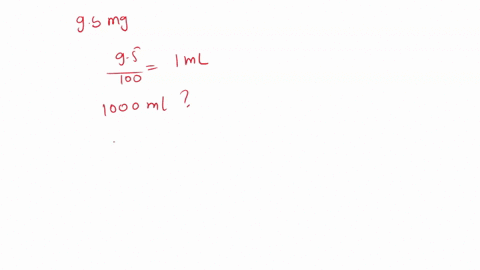 9.5 mg
9.5/100 = 1 mL
1000 ml ?